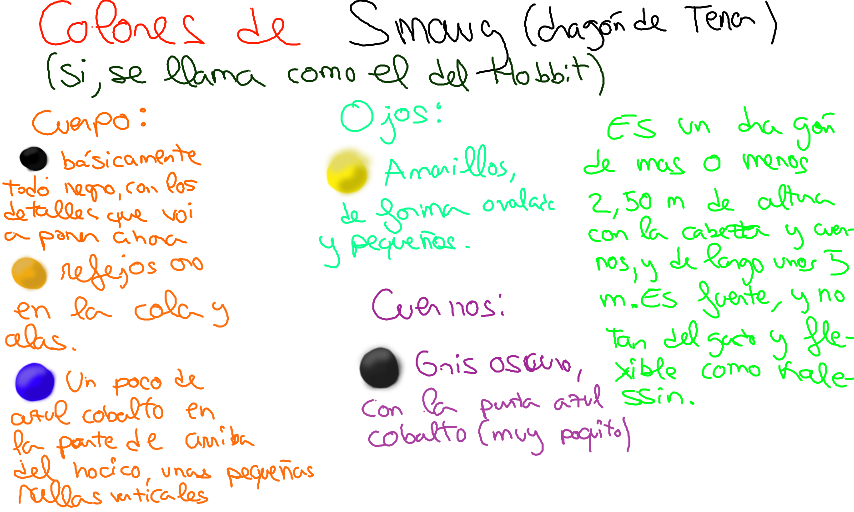 Colores de Smaug (dragón de Tenar)
(si, se llama como el del Hobbit)
Cuerpo:
básicamente
todo negro, con los
detalles que voi
a poner ahora
reflejos oro
en la cola y
alas.
Un poco de
azul cobalto en
la parte de arriba
del hocico, unas pequeñas
rallas verticales
Ojos:
Amarillos,
de forma ovalada
y pequeños.
Cuernos:
Gris oscuro,
con la punta azul
cobalto (muy poquito)
Es un dragón
de mas o menos
2,50 m de altura
con la cabeza y cuer-
nos, y de largo unos 5
m. Es fuerte, y no
tan delgado y fle-
xible como Kale-
ssin.